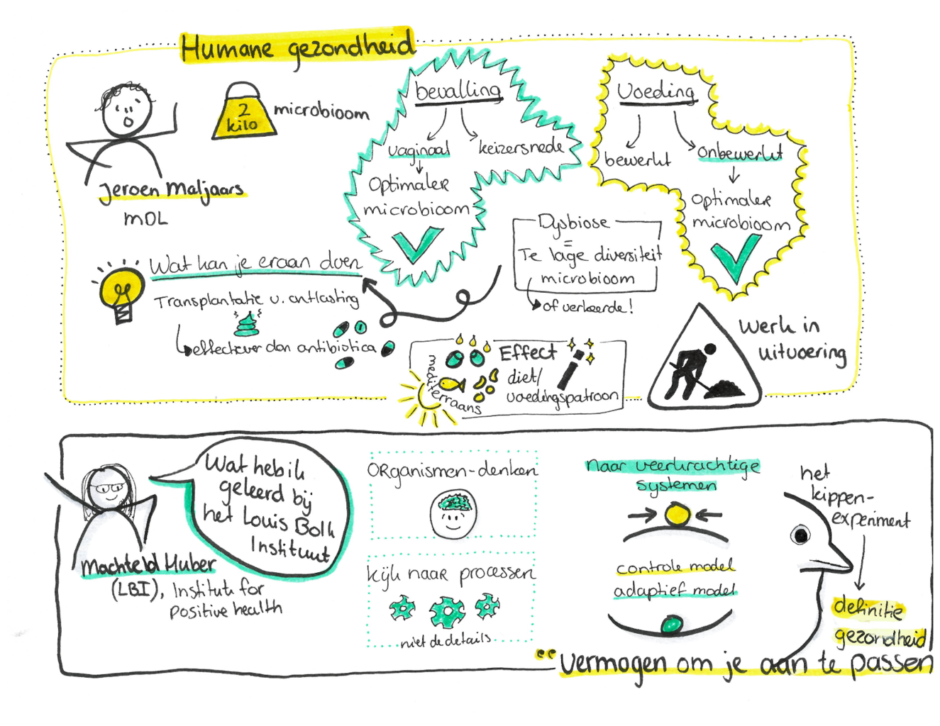 Humane gezondheid
Jeroen Maljaars
MDL
2
kilo
microbioom
bevalling
vaginaal
keizersnede
Optimaler
microbioom
Voeding
bewerkt
onbewerkt
Optimaler
microbioom
Dysbiose
=
Te lage diversiteit
microbioom
of verkeerde!
Wat kan je eraan doen
Transplantatie v. ontlasting
effectiever dan antibiotica
mediterraans
Effect
diet/
voedingspatroon
Werk in
uitvoering
Machteld Huber
(LBI), Institute for
positive health
Wat heb ik
geleerd bij
het Louis Bolk
Instituut
Organismen-denken
Kijk naar processen
niet de details
naar veerkrachtige
systemen
controle model
adaptief model
het
kippen-
experiment
definitie
gezondheid
"vermogen om je aan te passen